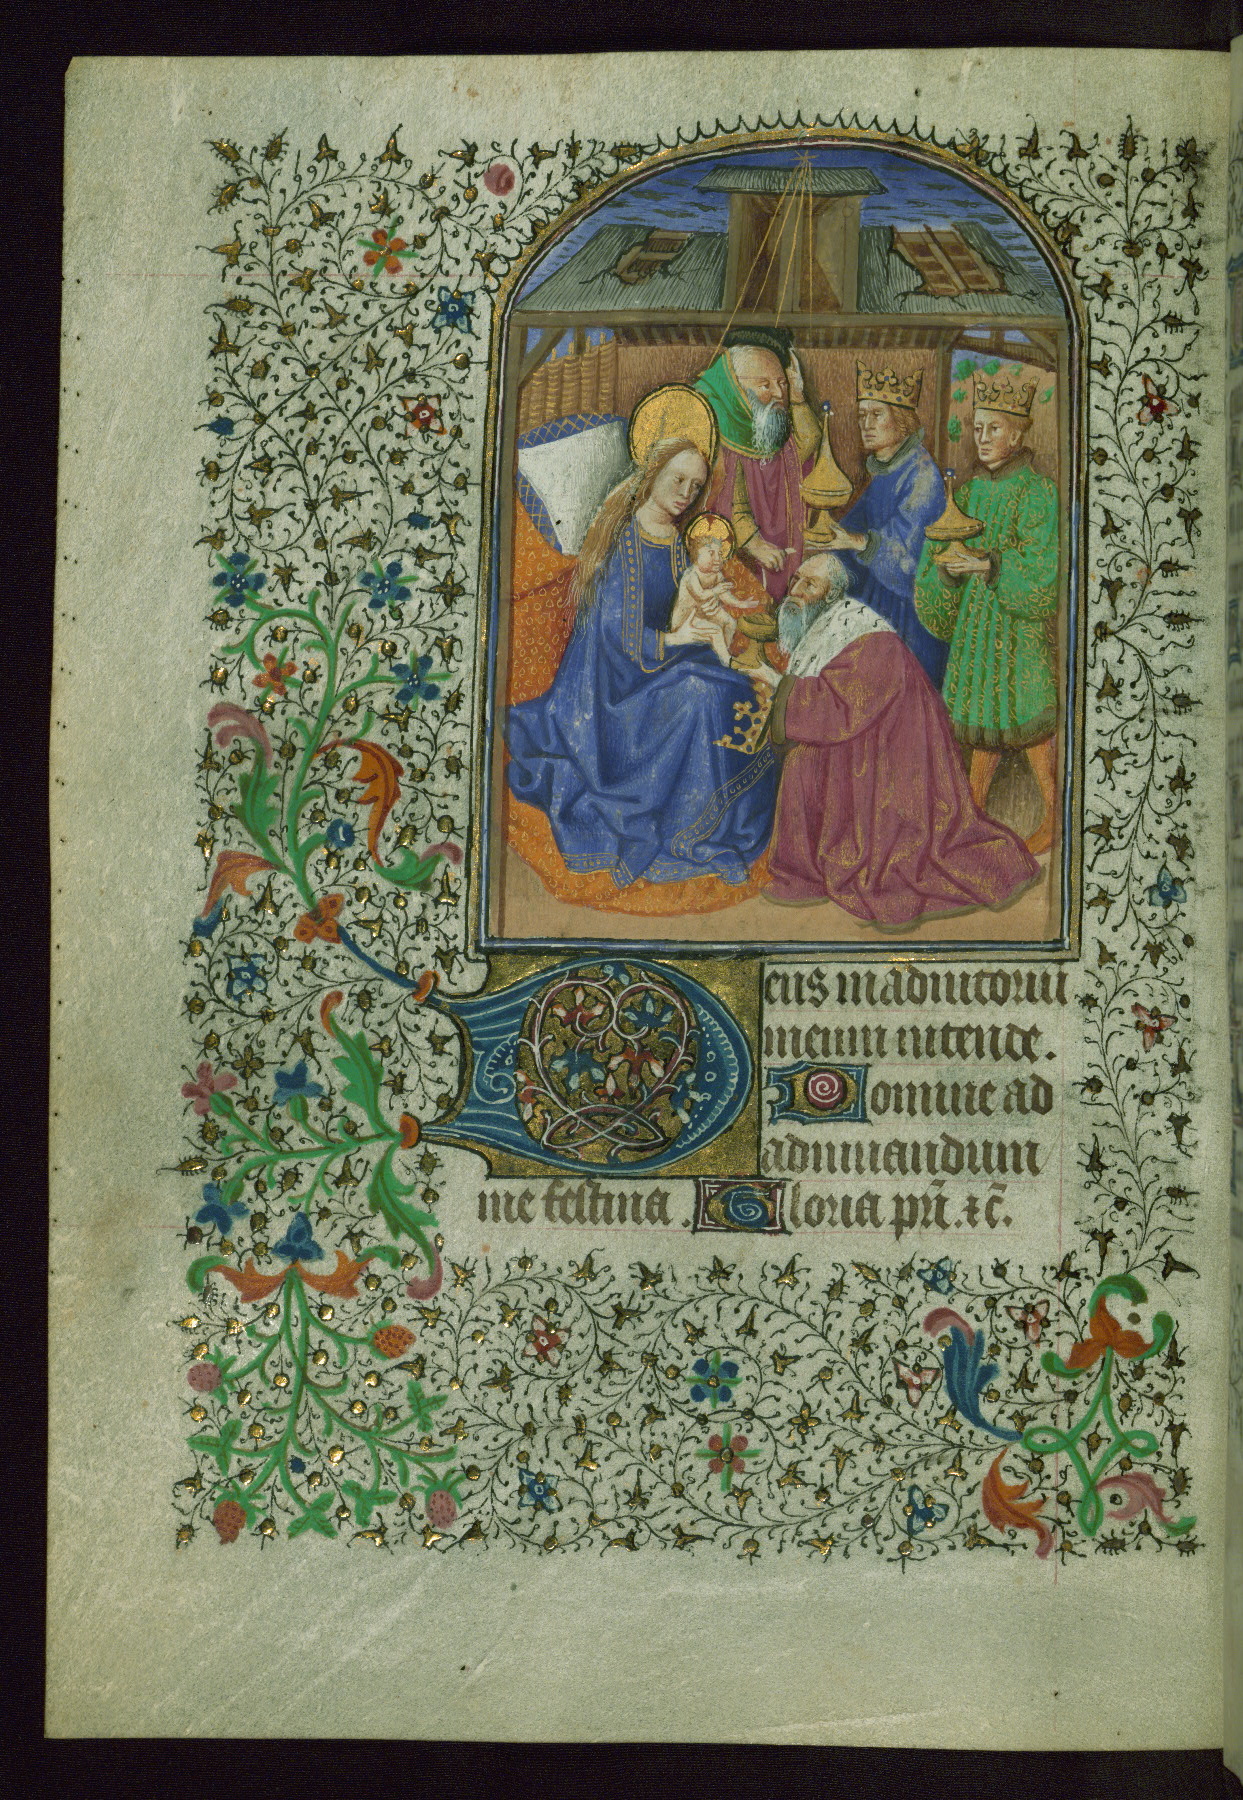 Deus in adiutoriu
meum intende.
Domine ad
adiuuandum
me festina. Gloria pri. et c.